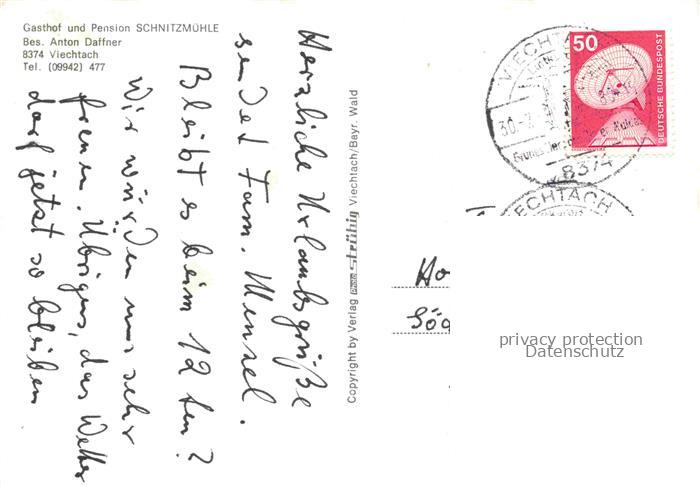 Gasthof und Pension SCHNITZMÜHLE
Bes. Anton Daffner
8374 Viechtach
Tel. (09942) 477
Herzliche Urlaubsgrüße
sendet Fam. Menzel.
Bleibt es beim 12ten?
Wir würden uns sehr
freuen. Übrigens, das Wetter
darf jetzt so bleiben
Copyright by Verlag Strühig Viechtach/Bayr. Wald
50
DEUTSCHE BUNDESPOST
VIECHTA
30.-
8374
VIECHTACH
Ho
Sög
privacy protection
Datenschutz